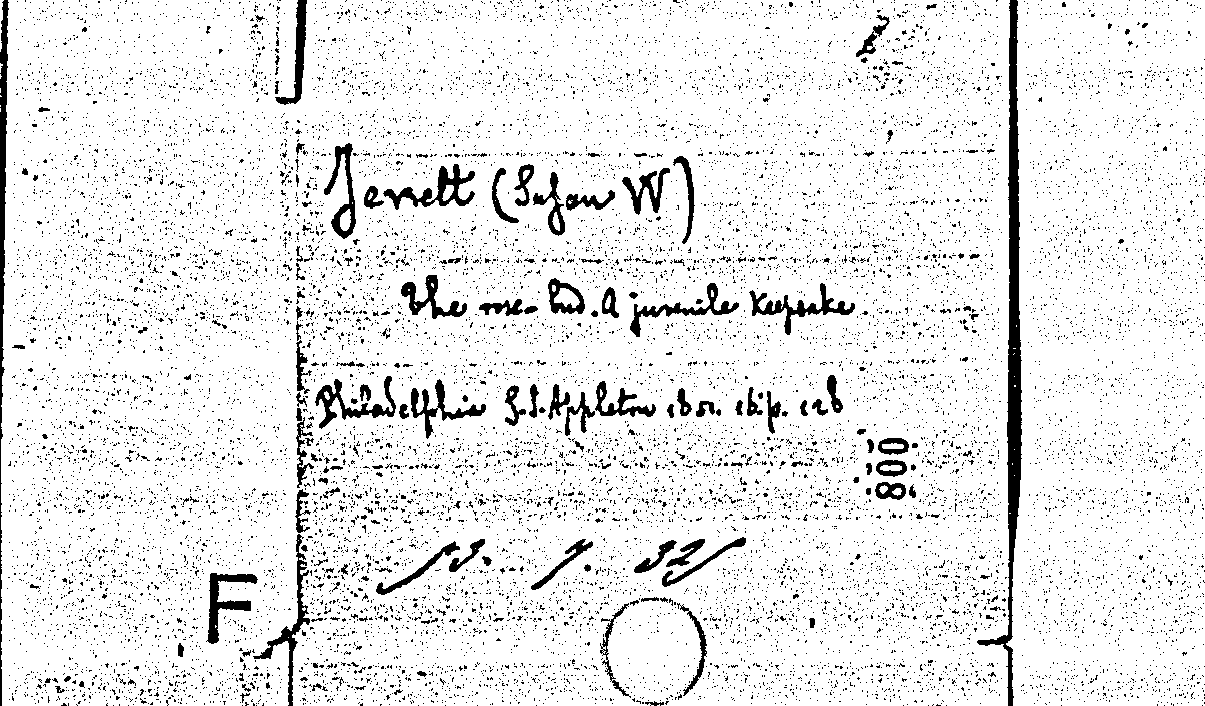 Jewett (Susan W)
The rose-bud. A juvenile keepsake.
Philadelphia G.S. Appleton 1851. 16°. p. 128
800
53. 7. 325
F